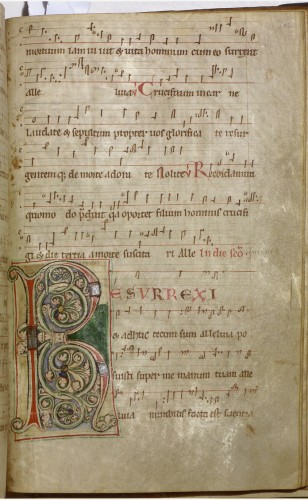 mortuum iam uiuit & uita hominum cum eo surgent
alle luia Crucifixum in carne
laudate & sepultum propter uos glorifica te resur
gentem q; de morte adora te Nolite Recordamini
quomo do p̄dixit qa oportet filium hominis crucifi
gi & die tertia a morte suscita ri alle In die sc̄o
RESURREXI
& adhuc tecum sum alleluia po
suisti super me manum tuam alle
luia mirabilis facta est scientia